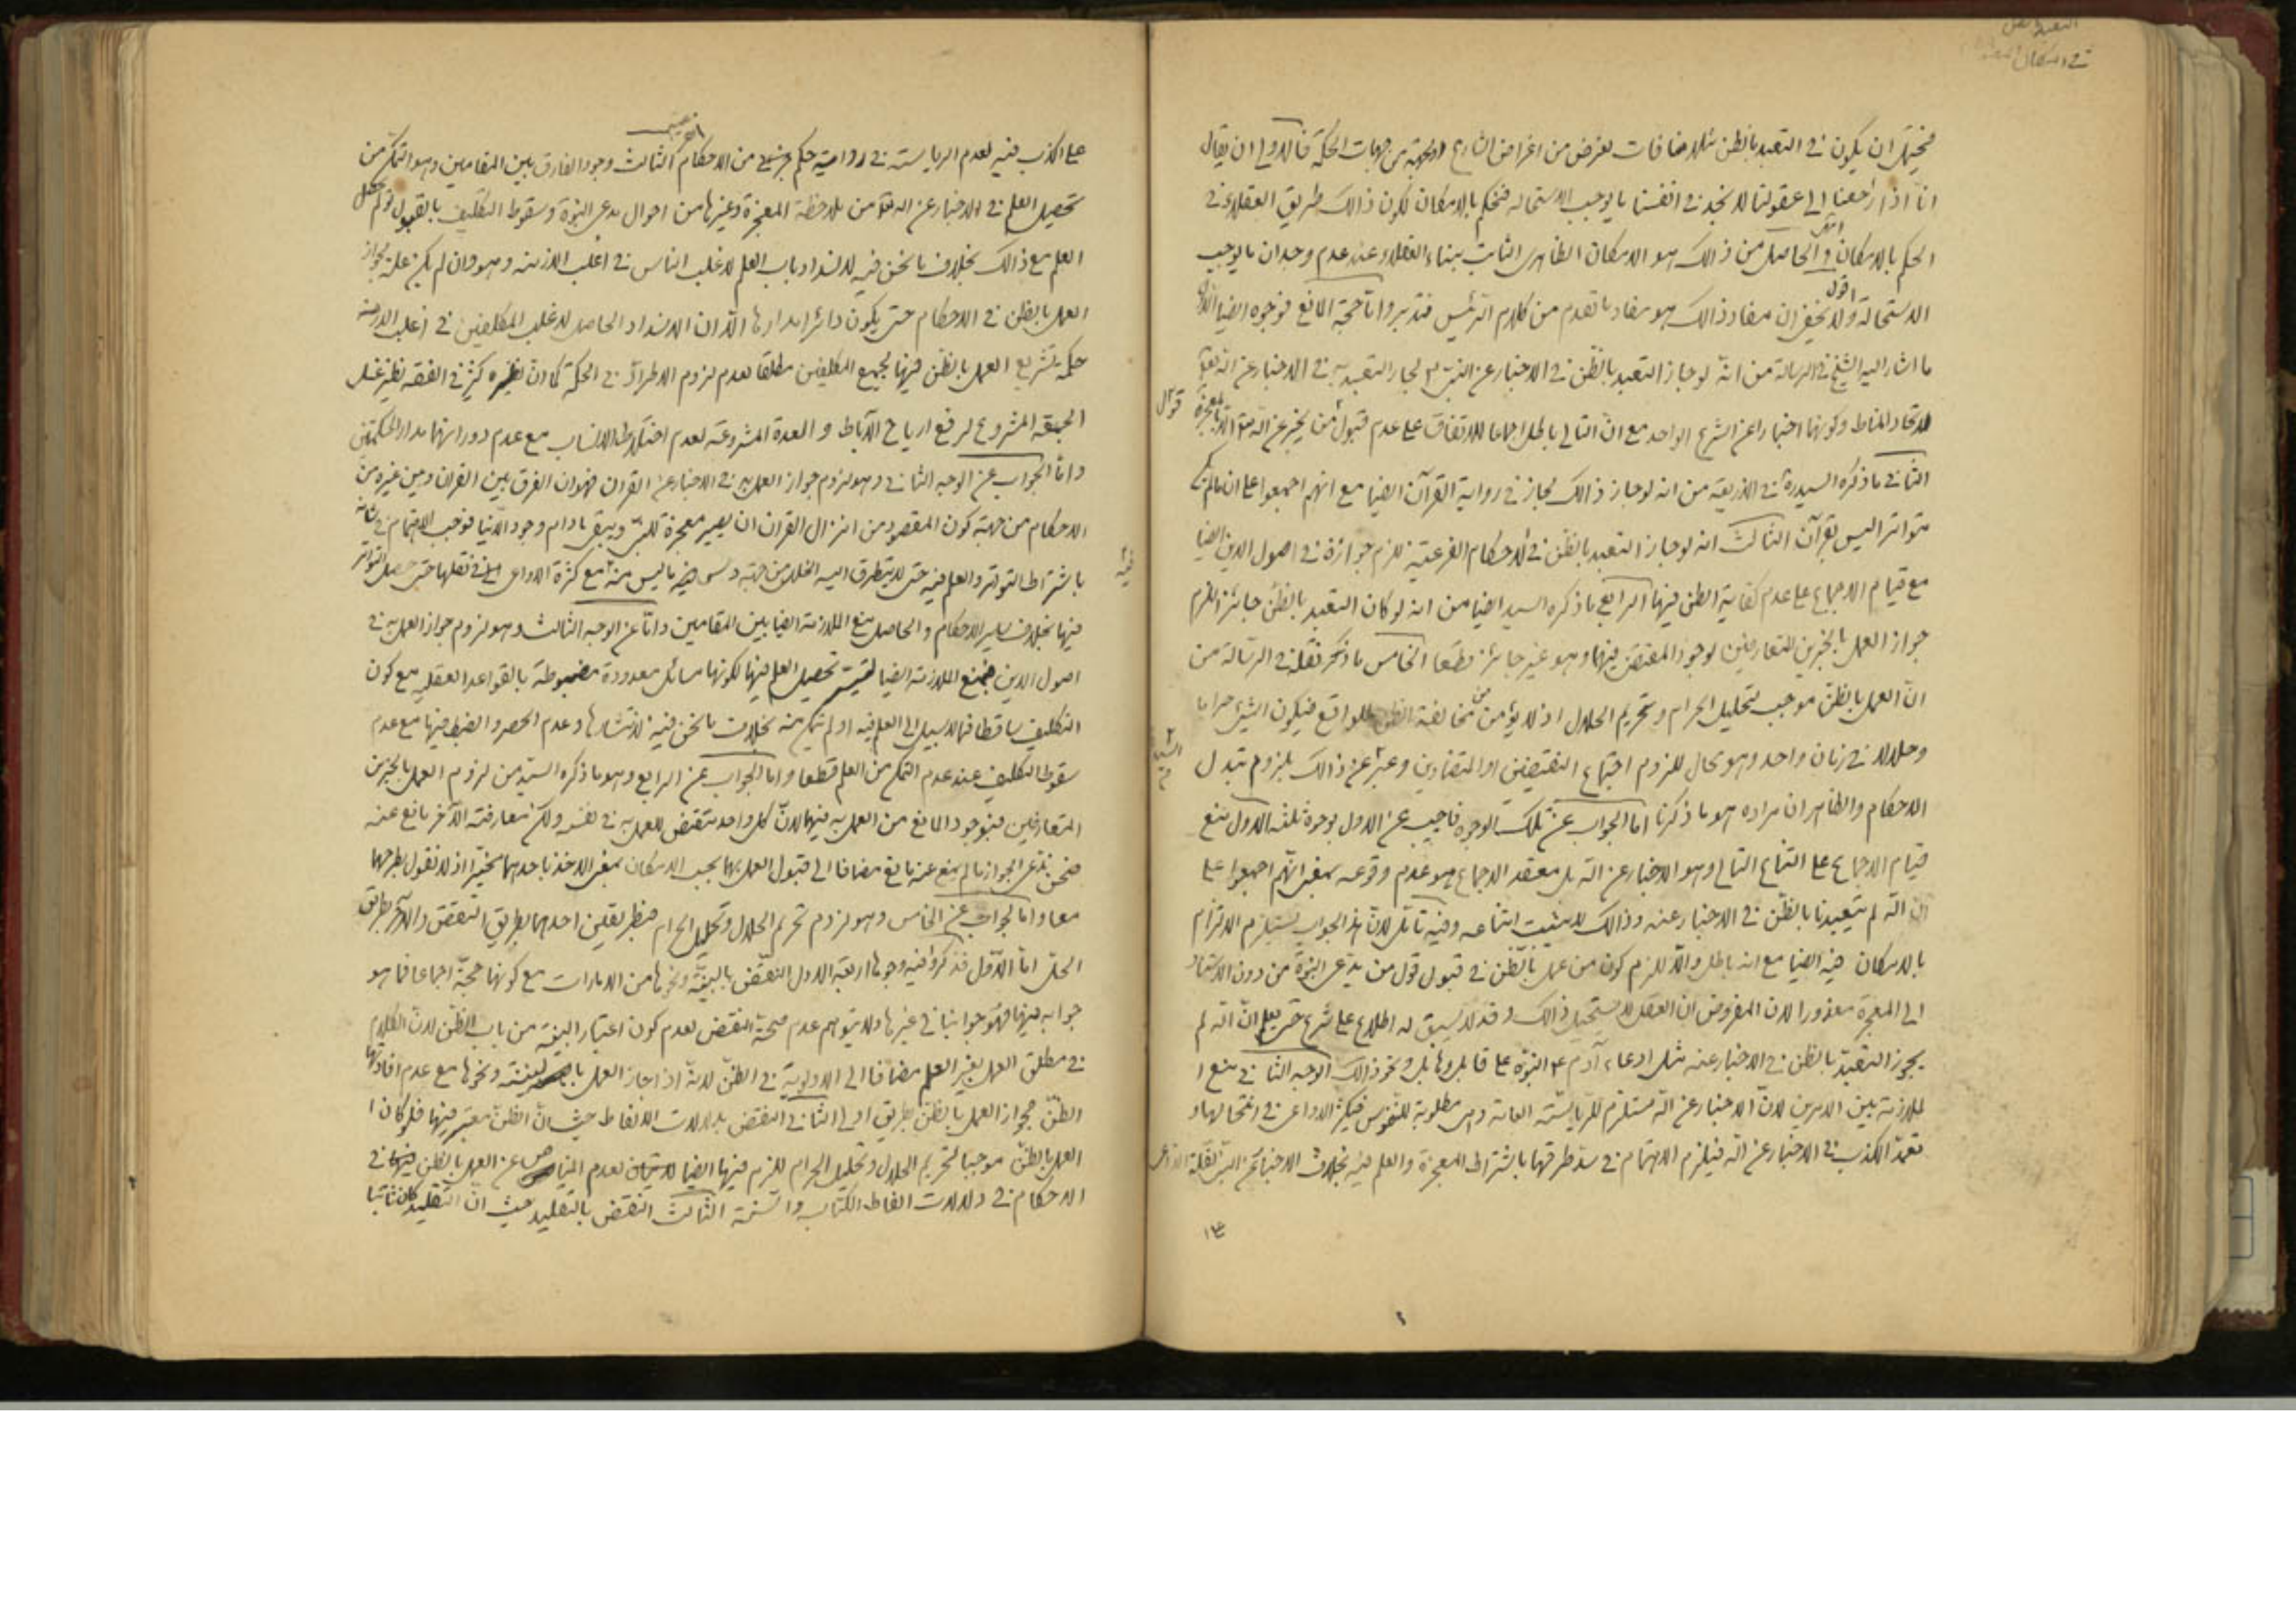 في امكان
فيحتمل ان يكون في التعبد بالظن مثلا منافات لغرض من اغراض الشارع او لجهة من جهات الحكمة فالاولى ان يقال
انا اذا راجعنا الى عقولنا لا نجد في انفسنا ما يوجب الاستحالة فنحكم بالامكان لكون ذالك طريق العقلاء في
الحكم بالامكان انتهى والحاصل من ذالك هو الامكان الظاهرى الثابت ببناء العقلاء عند عدم وجدان ما يوجب
الاستحالة اقول ولا يخفى ان مفاد ذالك هو مفاد ما تقدم من كلام الرئيس فتدبر واما حجة المانع فوجوه ايضا الاول
ما اشار اليه الشيخ في الرسالة من انه لو جاز التعبد بالظن في الاخبار عن النبي لجاز التعبد به في الاخبار عن الله تعالى
لاتحاد المناط وكونهما اخبارا عن الشرع الواحد مع ان التالى باطل اجماعا للاتفاق على عدم قبول قول من يخبر عن الله تعالى الا بالمعجزة
الثاني ما ذكره السيد ره في الذريعة من انه لو جاز ذالك لجاز في رواية القرآن ايضا مع انهم اجمعوا على ان ما لم يكن
متواترا ليس بقرآن الثالث انه لو جاز التعبد بالظن في الاحكام الفرعية للزم جوازه في اصول الدين ايضا
مع قيام الاجماع على عدم كفاية الظن فيها الرابع ما ذكره السيد ايضا من انه لو كان التعبد بالظن جائزا للزم
جواز العمل بالخبرين المتعارضين لوجود المقتضى فيهما وهو غير جائز قطعا الخامس ما ذكر نقله في الرسالة من
ان العمل بالظن موجب لتحليل الحرام وتحريم الحلال اذ لا يؤمن من مخالفة الظن للواقع فيكون الشئ حراما
وحلالا في زمان واحد وهو محال للزوم اجتماع النقيضين او المتضادين وعبر عن ذالك بلزوم تبدل
الاحكام والظاهر ان مراده هو ما ذكرنا اما الجواب عن تلك الوجوه فاجيب عن الاول بوجوه ثلثه الاول منع
قيام الاجماع على امتناع التالى وهو الاخبار عن الله بل معقد الاجماع هو عدم وقوعه بمعنى انهم اجمعوا على
ان الله لم يتعبدنا بالظن في الاخبار عنه وذالك لا يثبت امتناعه وفيه تأمل لان هذا الجواب يستلزم الالتزام
بالامكان فيه ايضا مع انه باطل والا للزم كون من عمل بالظن في قبول قول من يدعى النبوة من دون الاستناد
الى المعجزة معذورا لان المفروض ان العقل لا يستحيل ذالك وقد لا يسبق له اطلاع على شرع حتى يعلم ان الله لم
يجوز التعبد بالظن في الاخبار عنه مثل ادعاء آدم ع النبوة على قابيل وهابيل ونحو ذالك الوجه الثاني منع ا
لملازمة بين الامرين لان الاخبار عن الله مستلزم للرياسة العامة وهى مطلوبة للنفوس فيكثر الدواعى في انتحالها و
تعمد الكذب في الاخبار عن الله فيلزم الاهتمام في سد طرقها باشتراط المعجزة والعلم فيه بخلاف الاخبار عن النبى لقلة الدواعى
على الكذب فيه لعدم الرياسة في رواية حكم جزئى من الاحكام الثالث وجود الفارق بين المقامين وهو التمكن من
تحصيل العلم في الاخبار عن الله تعالى من ملاحظة المعجزة وغيرها من احوال مدعى النبوة وسقوط التكليف بالقبول لو لم يحصل
العلم مع ذالك بخلاف ما نحن فيه لانسداد باب العلم لاغلب الناس في اغلب الازمنه وهو وان لم يكن علة لجواز
العمل بالظن في الاحكام حتى يكون دائرا مدارها الا ان الانسداد الحاصل لاغلب المكلفين في اغلب الازمنة
حكمة تشريع العمل بالظن فيها لجميع المكلفين مطلقا لعدم لزوم الاطراد في الحكمة كما ان نظيره كثير في الفقه نظير غسل
الجمعه المشروع لرفع ارياح الآباط والعدة المشروعة لعدم اختلاط الانساب مع عدم دورانهما مدار الحكمتين
واما الجواب عن الوجه الثاني وهو لزوم جواز العمل به في الاخبار عن القرآن فهو ان الفرق بين القرآن وبين غيره من
الاحكام من جهة كون المقصود من انزال القرآن ان يصير معجزة للنبى ويبقى ما دام وجود الدنيا فوجب الاهتمام في شانه
باشتراط التواتر والعلم فيه حتى لا يتطرق اليه الخلل من جهة ودس فيه ما ليس منه مع كثرة الدواعى في نقلها حتى حصل التواتر
فيها بخلاف ساير الاحكام والحاصل منع الملازمة ايضا بين المقامين واما عن الوجه الثالث وهو لزوم جواز العمل به في
اصول الدين فبمنع الملازمة ايضا لتيسر تحصيل العلم فيها لكونها مسائل معدودة مضبوطة بالقواعد العقليه مع كون
التكليف ساقطا فيما لا سبيل الى العلم فيه او لم يتمكن منه بخلاف ما نحن فيه لانتشارها وعدم الحصر والضبط فيها مع عدم
سقوط التكليف عند عدم التمكن من العلم قطعا واما الجواب عن الرابع وهو ما ذكره السيد من لزوم العمل بالخبرين
المتعارضين فبوجود المانع من العمل به فيهما لان كل واحد مقتض للعمل به في نفسه ولكن معارضته الآخر مانع عنه
فنحن ندعى الجواز ما لم يمنع عنه مانع مضافا الى قبول العمل بهما بحسب الامكان بمعنى الاخذ باحدهما تخييرا اذ لا نقول بطرحهما
معا واما الجواب عن الخامس وهو لزوم تحريم الحلال وتحليل الحرام فبطريقين احدهما بطريق النقض والآخر بطريق
الحل اما الاول فذكروا فيه وجوها اربعة الاول النقض بالبينة ونحوها من الامارات مع كونها حجة اجماعا فما هو
جوابه فيها فهو جوابنا في غيرها ولا يتوهم عدم صحة النقض لعدم كون اعتبار البينة من باب الظن لان الكلام
في مطلق العمل بغير العلم مضافا الى الاولوية في الظن لانه اذا جاز العمل بالبينة ونحوها مع عدم افادتها
الظن فجواز العمل بالظن بطريق اولى الثاني النقض بدلالات الالفاظ حيث ان الظن معتبر فيها فلو كان ا
لعمل بالظن موجبا لتحريم الحلال وتحليل الحرام للزم فيها ايضا لعدم المناص عن العمل بالظن فيها في
الاحكام في دلالات الفاظ الكتاب والسنة الثالث النقض بالتقليد حيث ان التقليد كان ثابتا